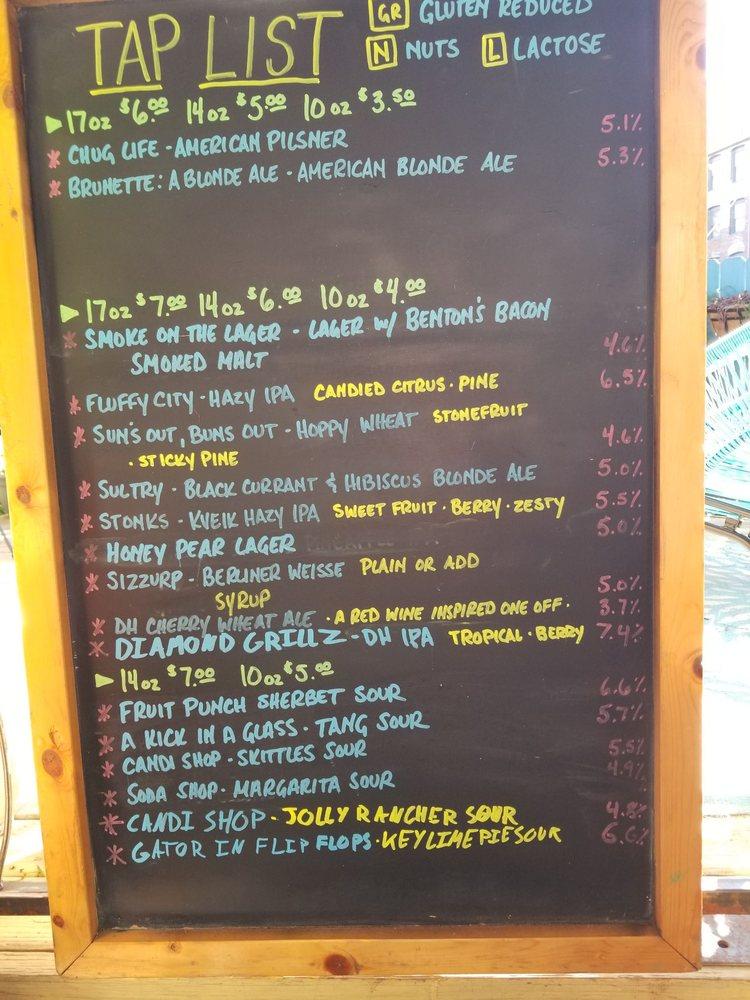 TAP LIST
GR GLUTEN REDUCED
N NUTS L LACTOSE
17oz $6.00 14oz $5.00 10oz $3.50
* CHUG LIFE - AMERICAN PILSNER 5.1%
* BRUNETTE: A BLONDE ALE - AMERICAN BLONDE ALE 5.3%
17oz $7.00 14oz $6.00 10oz $4.00
* SMOKE ON THE LAGER - LAGER W/ BENTON'S BACON
SMOKED MALT 4.6%
* FLUFFY CITY - HAZY IPA CANDIED CITRUS · PINE 6.5%
* SUN'S OUT, BUNS OUT - HOPPY WHEAT STONEFRUIT
· STICKY PINE 4.6%
* SULTRY - BLACK CURRANT & HIBISCUS BLONDE ALE 5.0%
* STONKS - KVEIK HAZY IPA SWEET FRUIT · BERRY · ZESTY 5.5%
* HONEY PEAR LAGER 5.0%
* SIZZURP - BERLINER WEISSE PLAIN OR ADD
SYRUP 5.0%
* DH CHERRY WHEAT ALE · A RED WINE INSPIRED ONE OFF. 3.7%
* DIAMOND GRILLZ - DH IPA TROPICAL · BERRY 7.4%
14oz $7.00 10oz $5.00
* FRUIT PUNCH SHERBET SOUR 6.6%
* A KICK IN A GLASS - TANG SOUR 5.7%
* CANDI SHOP - SKITTLES SOUR 5.5%
* SODA SHOP - MARGARITA SOUR 4.9%
* CANDI SHOP - JOLLY RANCHER SOUR 4.8%
* GATOR IN FLIP FLOPS · KEY LIME PIE SOUR